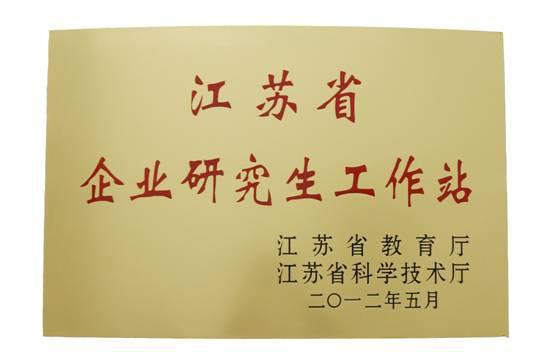 江苏省
企业研究生工作站
江苏省教育厅
江苏省科学技术厅
二〇一二年五月